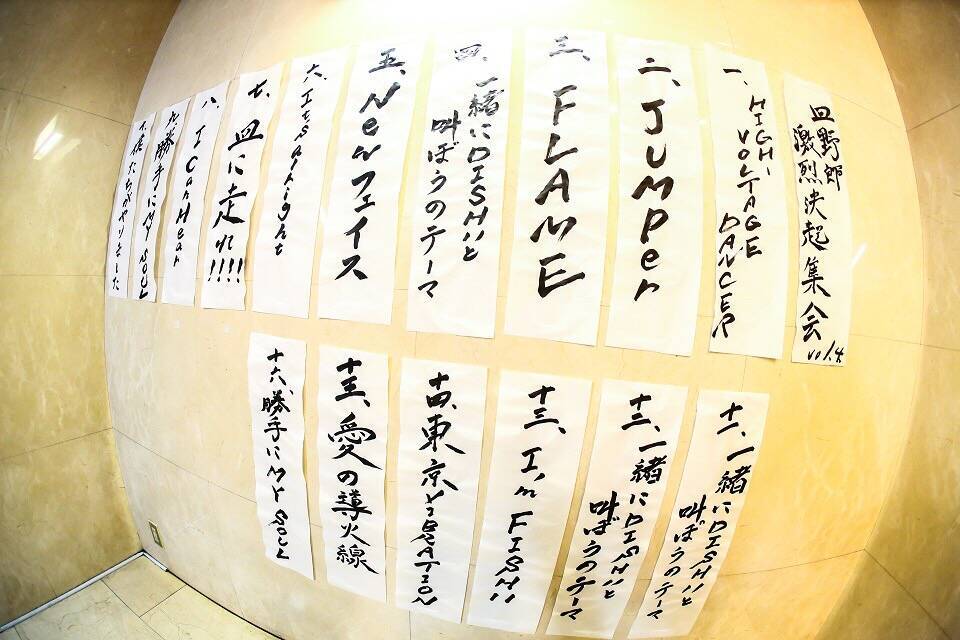 皿野郎
激烈決起集会 vol.4
一、HIGH-
VOLTAGE
DANCER
二、JUMPer
三、FLAME
四、一緒にDISH//と
叫ぼうのテーマ
五、Newフェイス
六、It's alright
七、皿に走れ!!!!
八、I Can Hear
九、勝手にMY SOUL
十、俺たちがやりました
十一、一緒にDISH//と
叫ぼうのテーマ
十二、一緒にDISH//と
叫ぼうのテーマ
十三、I'm FISH//
十四、東京VIBRATION
十五、愛の導火線
十六、勝手にMY SOUL